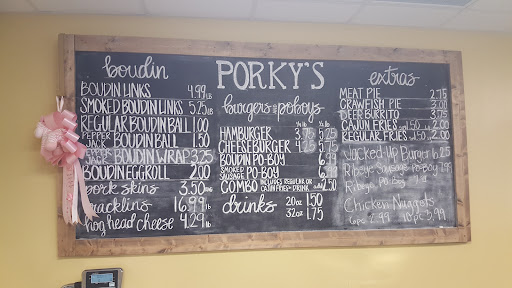 PORKY'S
boudin
BOUDIN LINKS 4.99 LB
SMOKED BOUDIN LINKS 5.25 LB
REGULAR BOUDIN BALL 1.00
PEPPER JACK BOUDIN BALL 1.50
PEPPER JACK BOUDIN WRAP 3.25
BOUDIN EGGROLL 2.00
pork skins 3.50
cracklins 16.99 lb
hog head cheese 4.29 lb
burgers and poboys
1/4 lb 1/2 lb
HAMBURGER 3.75 5.25
CHEESEBURGER 4.25 5.75
BOUDIN PO-BOY 6.99
SMOKED SAUSAGE PO-BOY
COMBO INCLUDES REGULAR OR CAJUN FRIES + DRINK 2.50
drinks 20oz 1.50
32oz 1.75
extras
MEAT PIE 2.75
CRAWFISH PIE 3.00
DEER BURRITO 3.75
CAJUN FRIES 1.50 2.00
REGULAR FRIES 1.50 2.00
Jacked-Up Burger 6.25
Ribeye Sausage Po-Boy 7.99
Ribeye Po-Boy
Chicken Nuggets
6pc 2.99 10pc 3.99